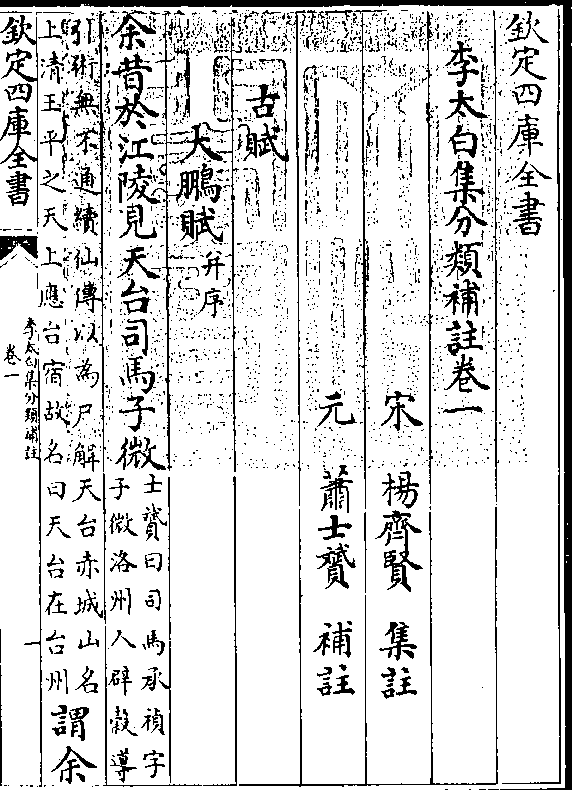 欽定四庫全書
李太白集分類補註卷一
宋　楊齊賢　集註
元　蕭士贇　補註
古賦
大鵬賦并序
余昔於江陵見天台司馬子微
士贇曰司馬承禎字
子微洛州人辟穀導
引術無不通續仙傳以為尸解天台赤城山名
上清玉平之天上應台宿故名曰天台在台州
謂余
欽定四庫全書
李太白集分類補註
卷一
一